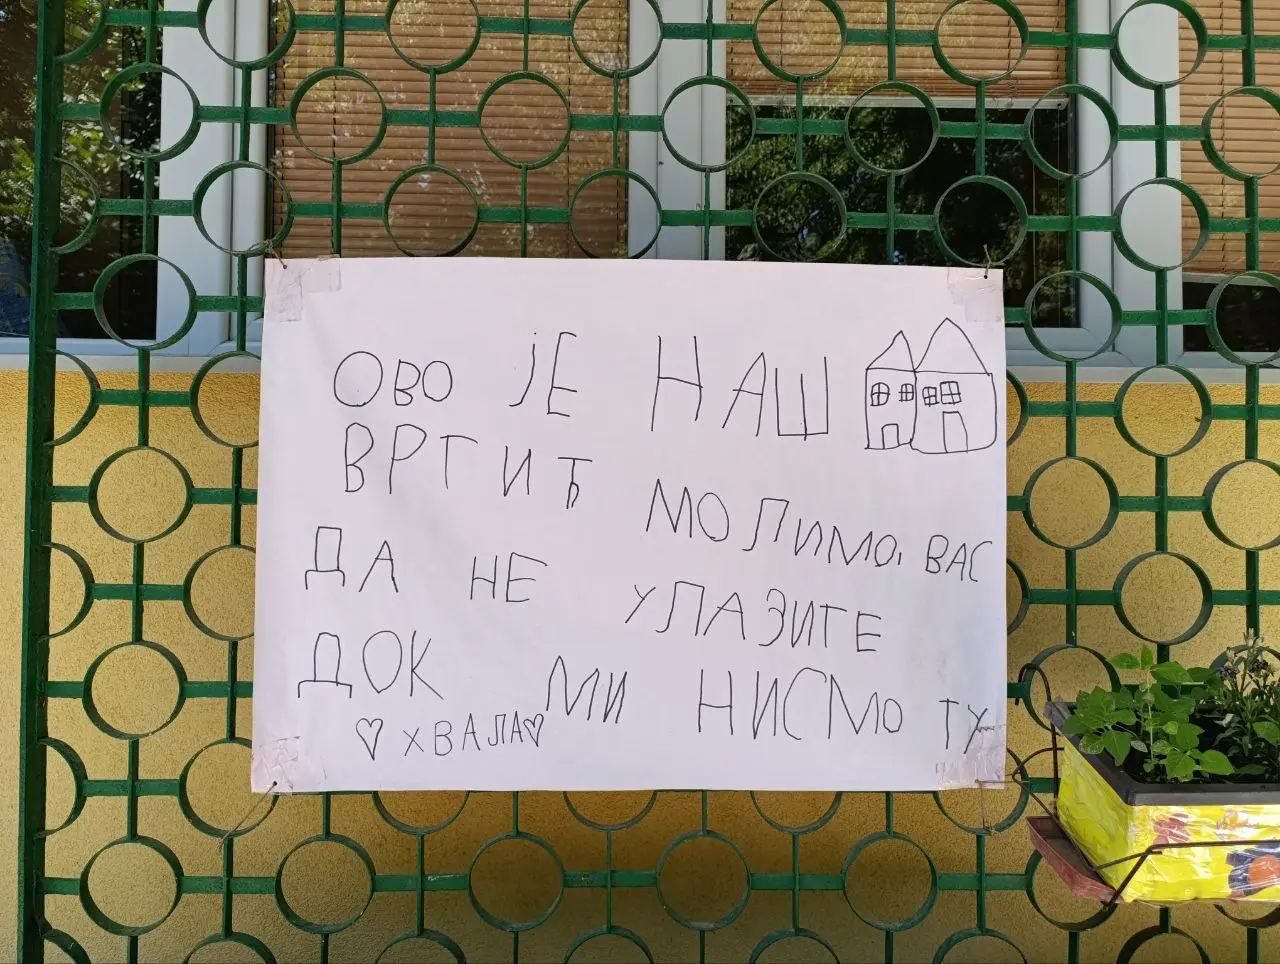 ОВО ЈЕ НАШ
ВРТИЋ МОЛИМО, ВАС
ДА НЕ УЛАЗИТЕ
ДОК МИ НИСМО ТУ
♡ ХВАЛА♡